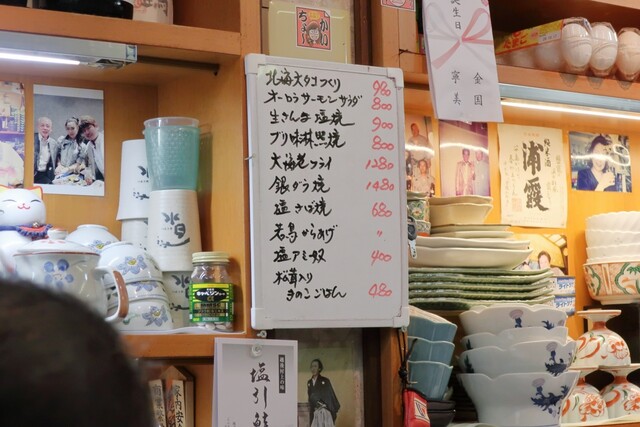 北海大タコつくり 980
オーロラサーモンサラダ 800
生さんま塩焼 900
ブリ味醂黒焼 800
大海老フライ 1280
銀ダラ焼 1480
塩さば焼 680
若鳥からあげ 〃
塩アミ奴 400
松茸入り
きのこごはん 480
生日
金国
寧美
浦霞
塩引鮭